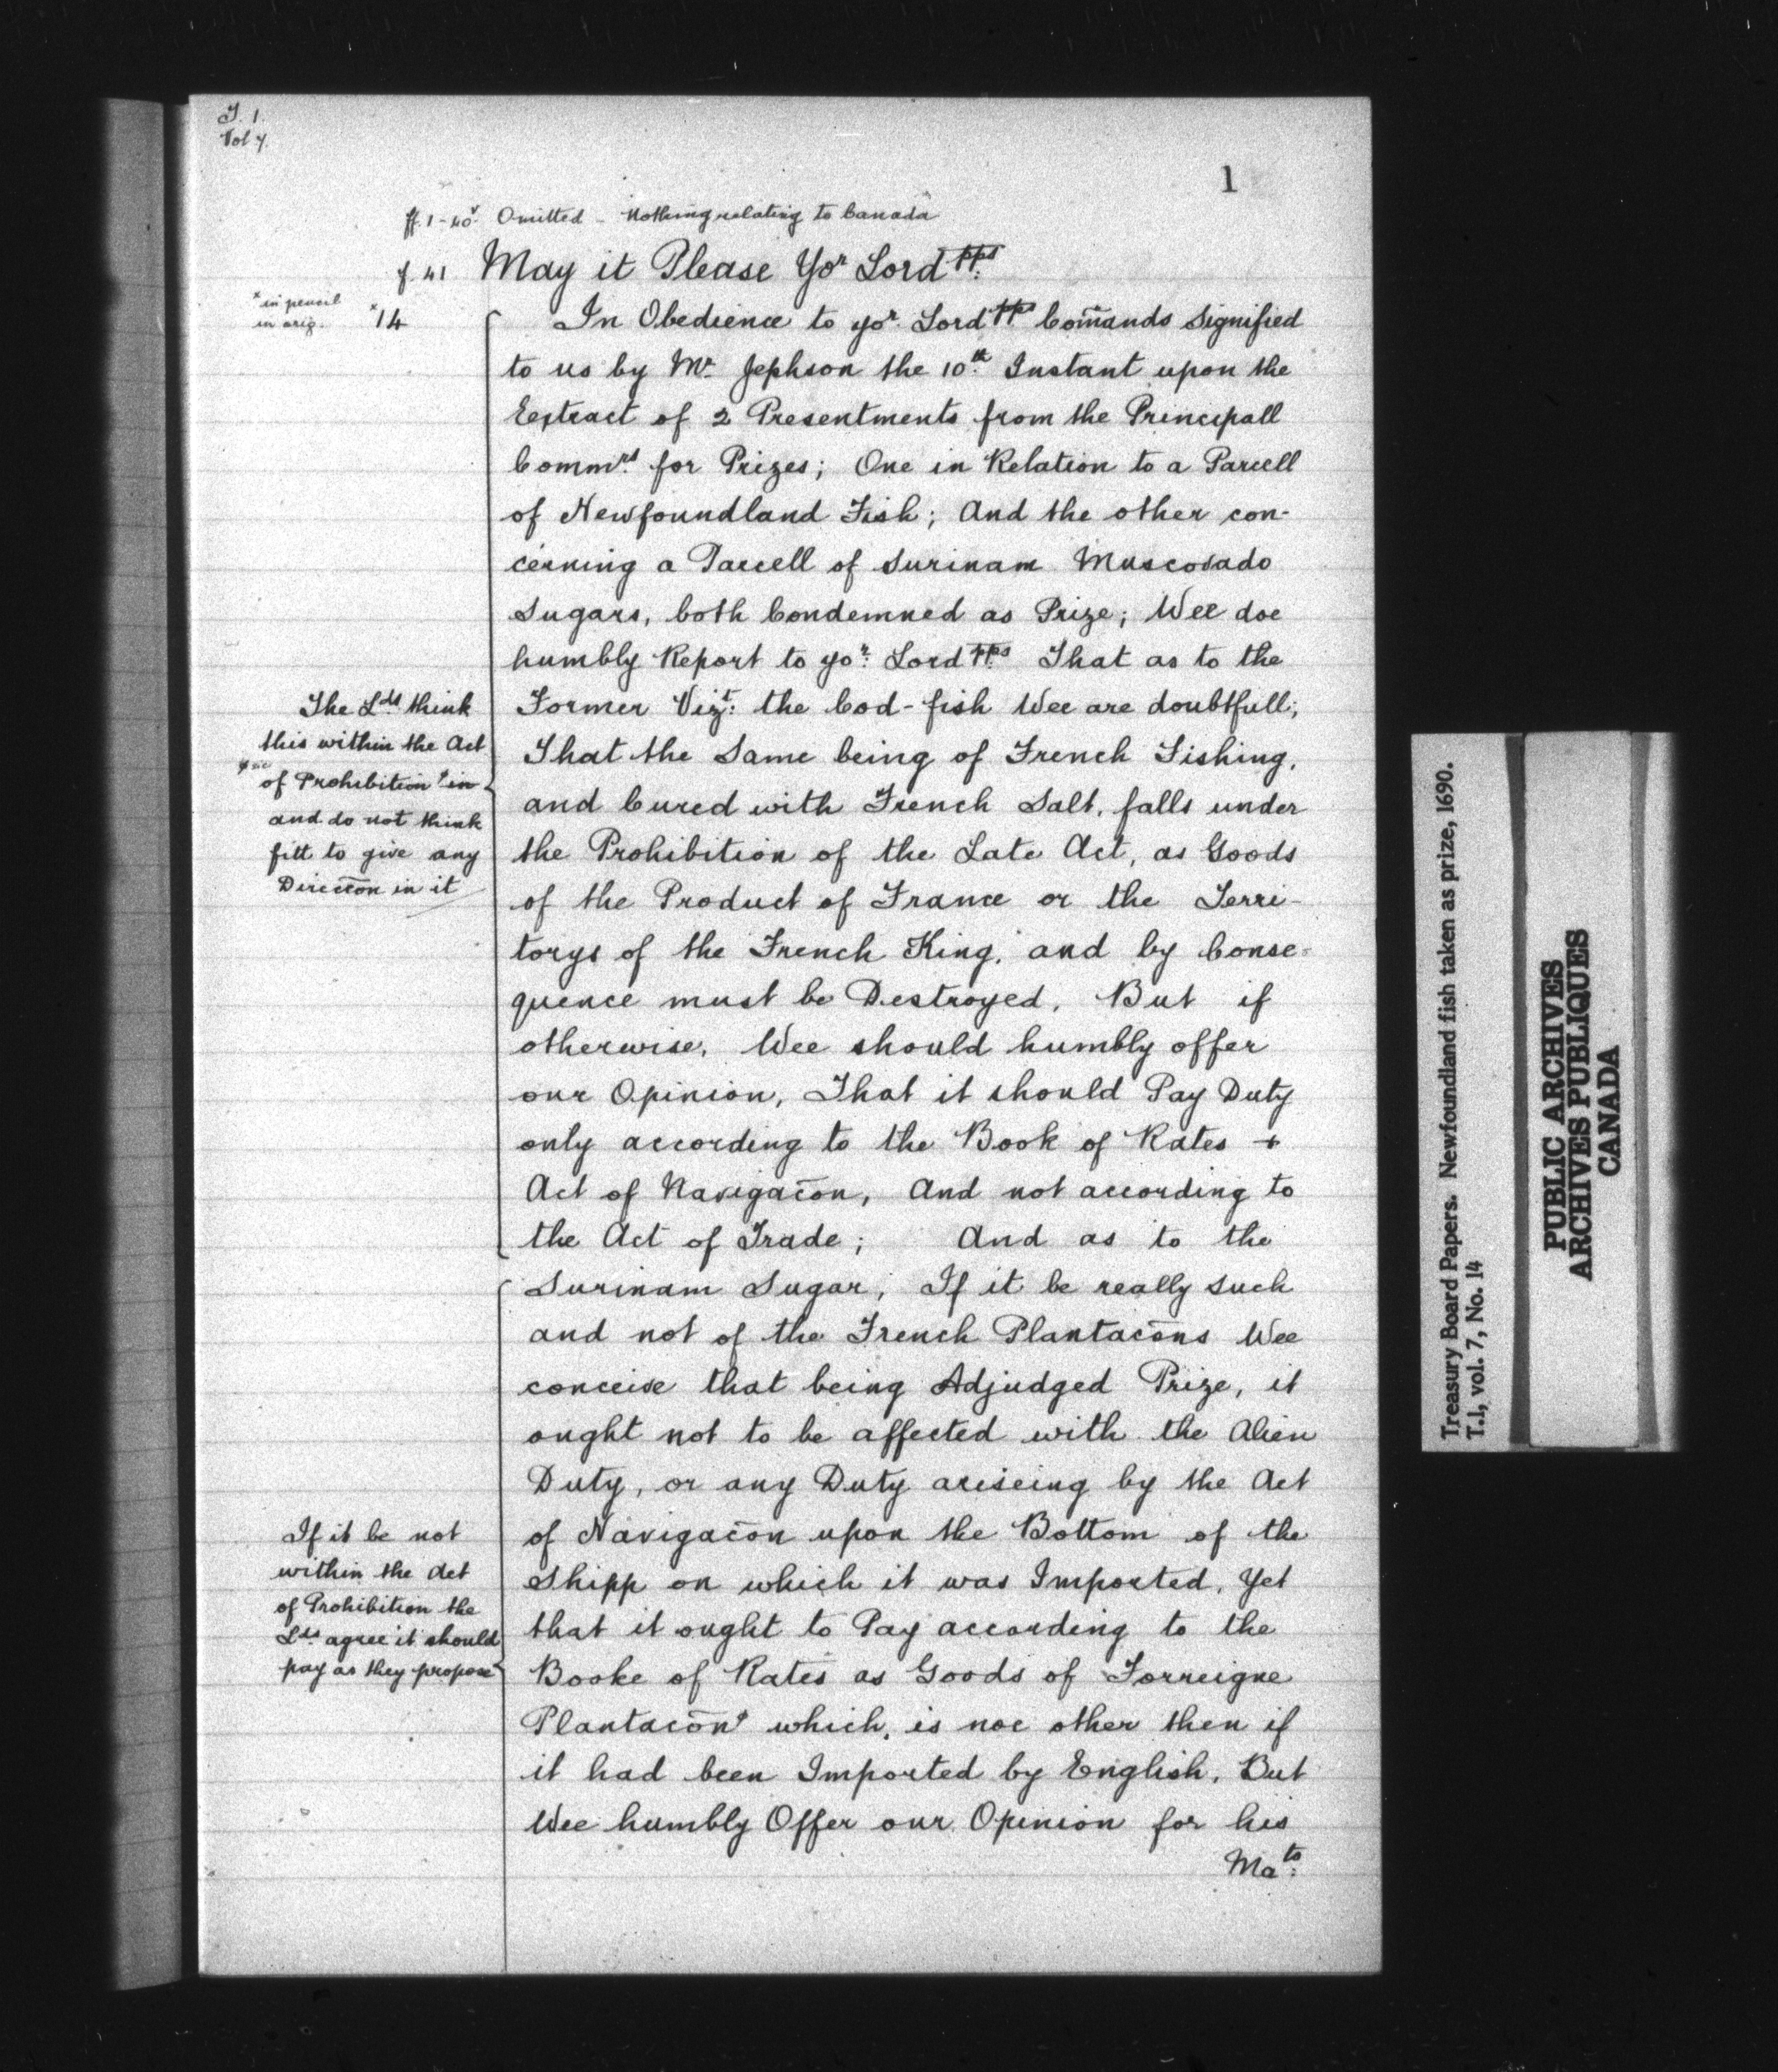 T. 1.
Vol 7.
1
ff. 1-40v. Omitted - Nothing relating to Canada
f. 41 May it Please Yor Lordpps:
*in pencil
in orig.
*14
In Obedience to yor. Lordpps Com̄ands Signified
to us by Mr. Jephson the 10th. Instant upon the
Extract of 2 Presentments from the Principall
Commrs. for Prizes; One in Relation to a Parcell
of Newfoundland Fish; And the other con-
cerning a Parcell of Surinam Muscovado
Sugars, both Condemned as Prize; Wee doe
humbly Report to yor: Lordpps That as to the
Former Vizt: the Cod-fish Wee are doubtfull;
That the Same being of French Fishing,
and Cured with French Salt, falls under
the Prohibition of the Late Act, as Goods
of the Product of France or the Terri-
torys of the French King, and by Conse-
quence must be Destroyed. But if
otherwise, Wee should humbly offer
our Opinion, That it should Pay Duty
only according to the Book of Rates +
Act of Navigac̄on, And not according to
the Act of Trade; And as to the
Surinam Sugar; If it be really such
and not of the French Plantac̄ons Wee
conceive that being Adjudged Prize, it
ought not to be affected with the Alien
Duty, or any Duty ariseing by the Act
of Navigac̄on upon the Bottom of the
Shipp on which it was Imported, Yet
that it ought to Pay according to the
Booke of Rates as Goods of Forreigne
Plantac̄ons which, is noe other then if
it had been Imported by English, But
Wee humbly Offer our Opinion for his
Mats:
The Lds. think
this within the Act
* sic
of Prohibition * in
and do not think
fitt to give any
Direcc̄on in it
If it be not
within the Act
of Prohibition the
Lds. agree it should
pay as they propose
Treasury Board Papers. Newfoundland fish taken as prize, 1690.
T.1, vol. 7, No. 14
PUBLIC ARCHIVES
ARCHIVES PUBLIQUES
CANADA